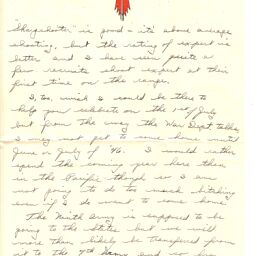 Sharpshooter" is good - its above average
shooting, but the rating of expert is
better and I have seen quite a
few recruits shoot expert at their
first time on the range.
I, too, wish I could be there to
help you celebrate on the 4th July
but from the way the War Dept. talks
I may not get to come home until
June or July of '46. I would rather
spend the coming year here than
in the Pacific though so I am
not going to do too much bitching
even if I do want to come home.
The Ninth Army is supposed to be
going to the States but we will
more than likely be transferred from
it to the 7th Army and so